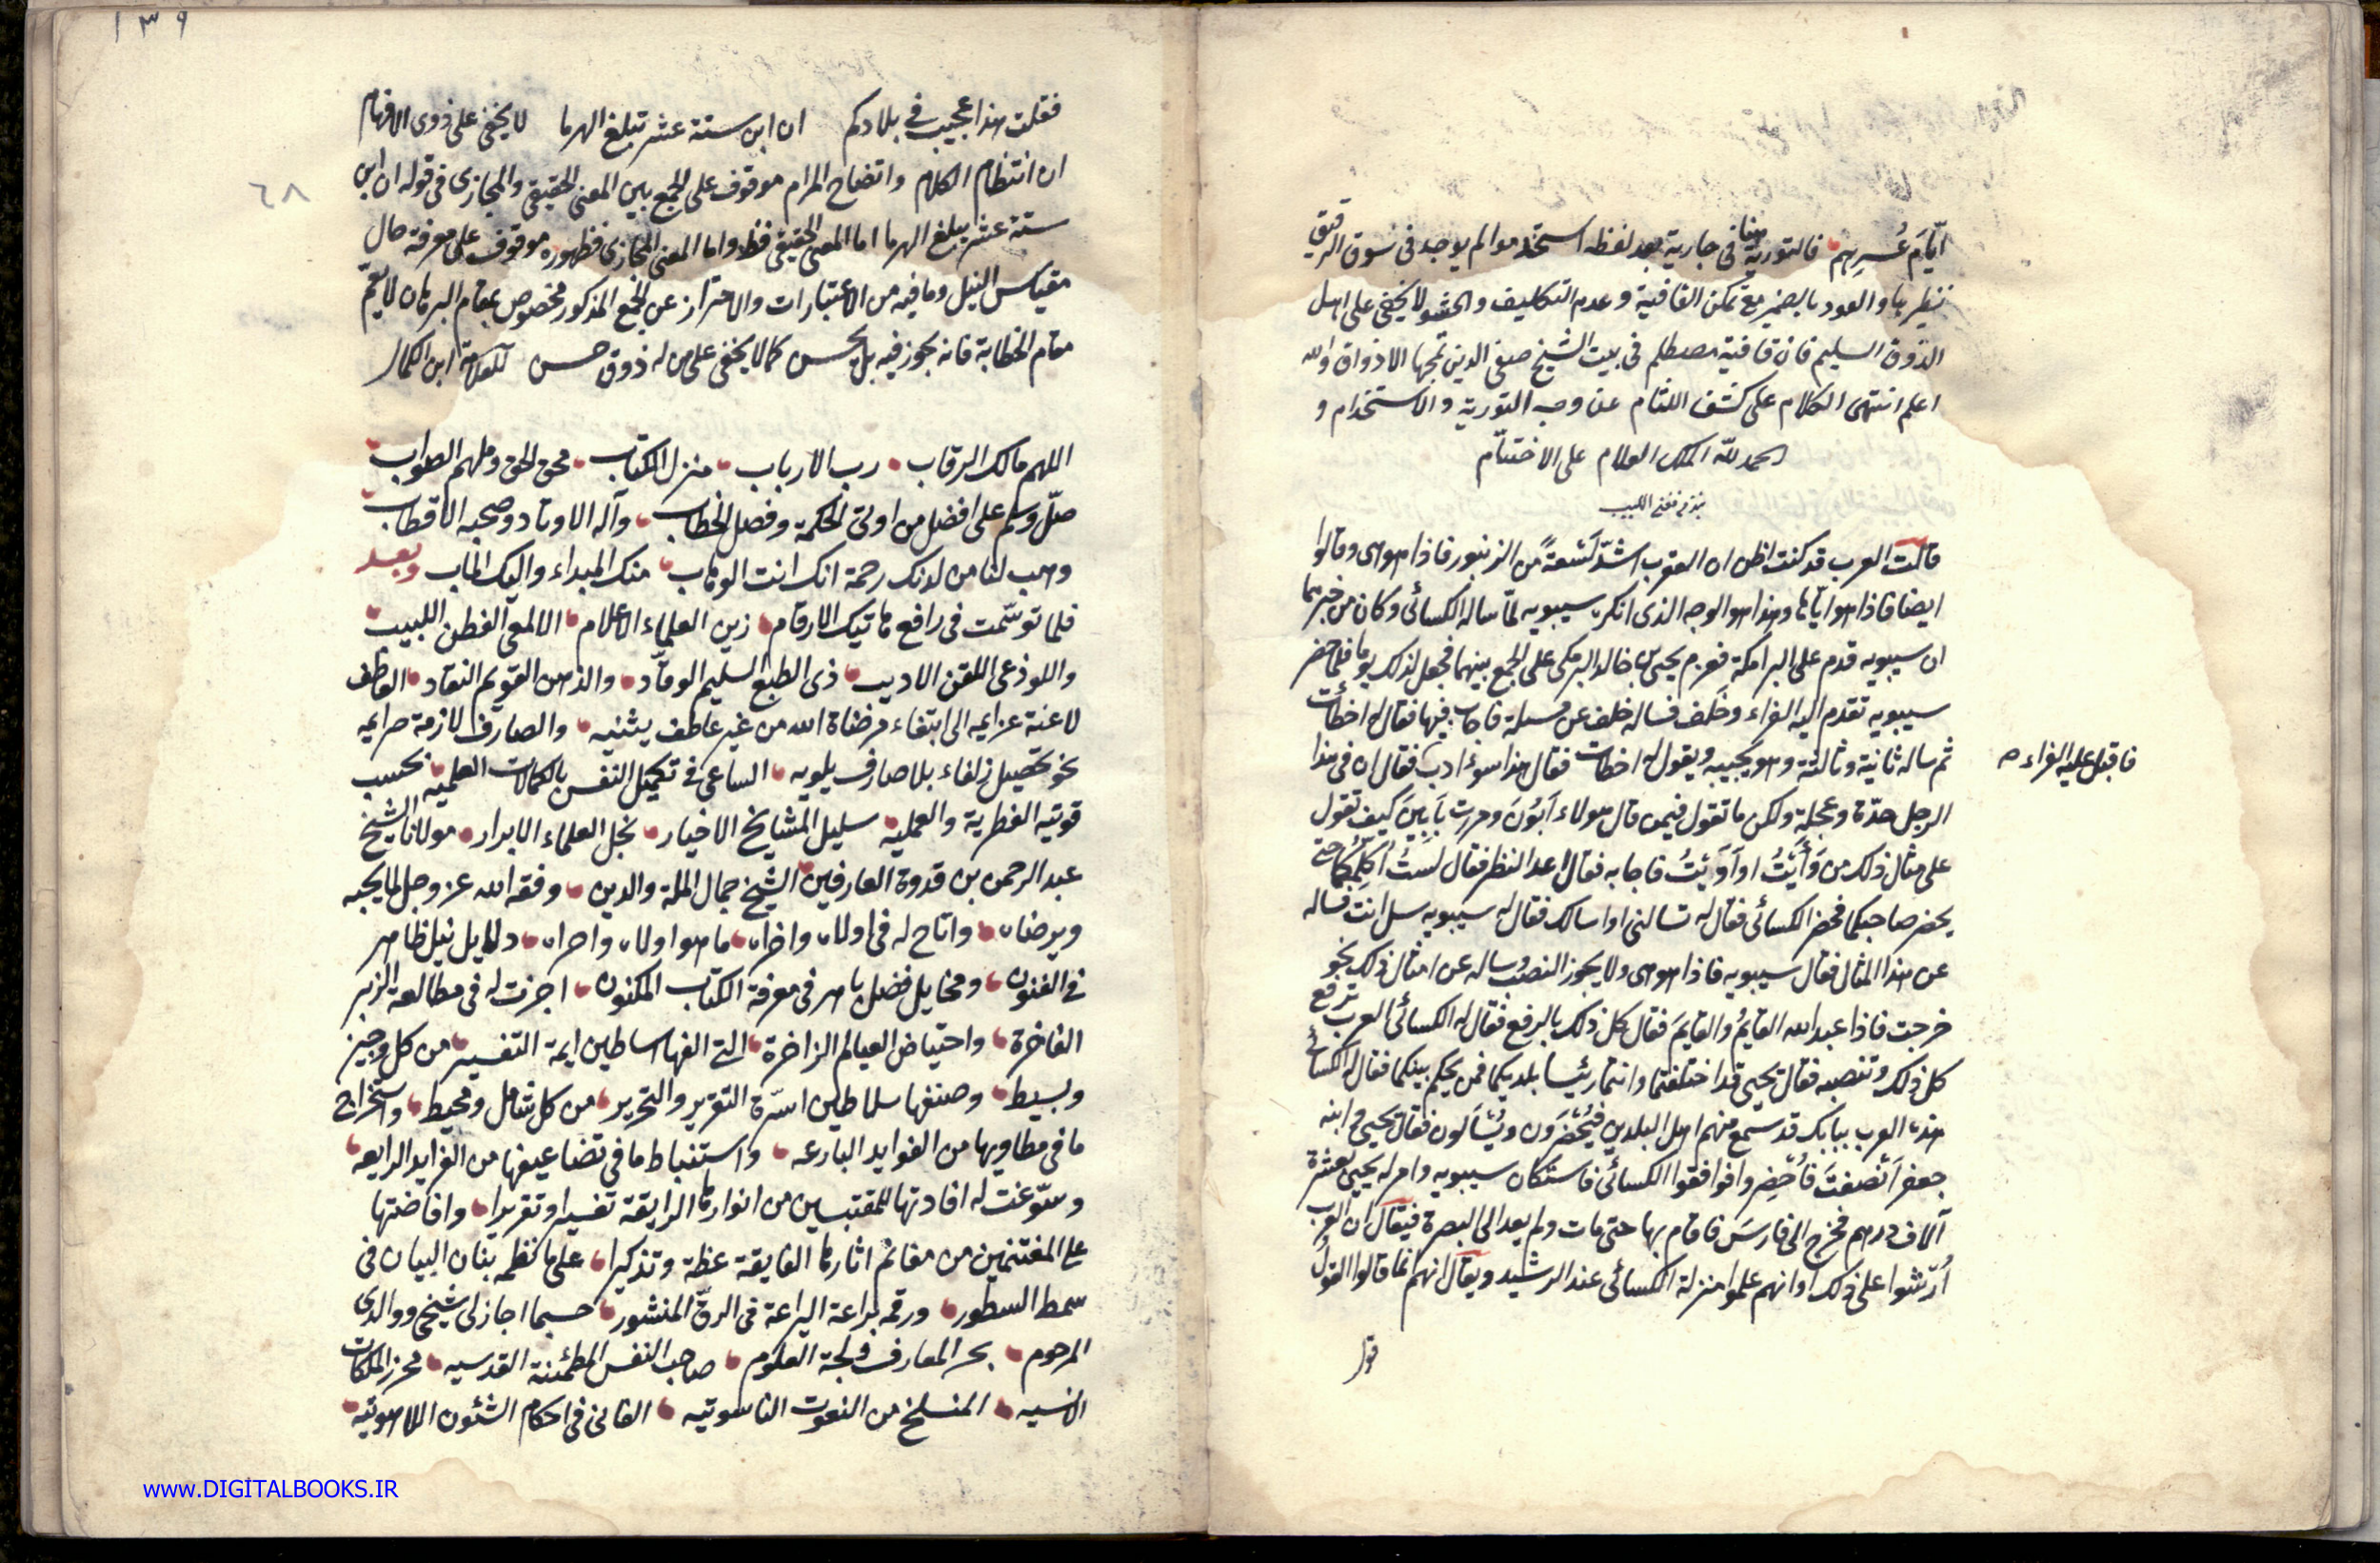 ايّامَ عُسرِهم فالتورية هنا في جارية بعد لفظه استخدموا لم يوجد في سوق الرقيق
نظيرها والعود بالضمير مع تمكن القافية وعدم التكليف والحشو لا يخفى على اهل
الذوق السليم فان قافية مصطلم في بيت الشيخ صفى الدين تمجها الاذواق والله
اعلم انتهى الكلام على كشف اللثام عن وجه التورية والاستخدام و
الحمد لله الملك العلام على الاختتام
نبذ من مغنى اللبيب
قالت العرب قد كنت اظن ان العقرب اشدّ لسعةً من الزنبور فاذا هو هى وقالوا
ايضا فاذا هو ايّاها وهذا هو الوجه الذى انكره سيبويه لمّا ساله الكسائى وكان من خبرهما
ان سيبويه قدم على البرامكة فعزم يحيى بن خالد البرمكى على الجمع بينهما فجعل لذلك يوما فلما حضر
سيبويه تقدم اليه الفراء وخلف فساله خلف عن مسئلة فاجاب فيها فقال له اخطأت
ثم ساله ثانية وثالثة وهو يجيبه ويقول له اخطات فقال هذا سوء ادب فقال ان في هذا
فاقبل عليه الفراء صح
الرجل حدّة وعجلة ولكن ما تقول فيمن قال هولاء اَبُونَ ومررت باَبِينَ كيف تقول
على مثال ذلك من وَأَيْتُ او اَوَيْتُ فاجابه فقال اعد النظر فقال لستُ اُكلّمكما حتى
يحضر صاحبكما فحضر الكسائى فقال له تسالنى او اسالك فقال له سيبويه سل انت فساله
عن هذا المثال فقال سيبويه فاذا هو هى ولا يجوز النصب وساله عن امثال ذلك نحو
خرجت فاذا عبد الله القايمُ والقايمَ فقال كل ذلك بالرفع فقال له الكسائى العرب ترفع
كل ذلك وتنصبه فقال يحيى قد اختلفتما وانتما رئيسا بلديكما فمن يحكم بينكما فقال له الكسائى
هذه العرب ببابك قد سمع منهم اهل البلدين فيُحضَرون ويُسألون فقال يحيى وابنه
جعفر اَنصفتَ فأُحضِروا فوافقوا الكسائى فاستكان سيبويه وامر له يحيى بعشرة
آلاف درهم فخرج الى فارسَ فاقام بها حتى مات ولم يعد الى البصرة فيقال ان العرب
اُرشوا على ذلك او انهم علموا منزلة الكسائى عند الرشيد ويقال انهم انما قالوا القول
قول
١٣٩
٦٨
فقلت هذا عجيب في بلادكم ان ابن ستة عشر تبلغ الهرما لا يخفى على ذوى الافهام
ان انتظام الكلام واتضاح المرام موقوف على الجمع بين المعنى الحقيقى والمجازى في قوله ان ابن
ستة عشر يبلغ الهرما اما المعنى الحقيقى فظ واما المعنى المجازى فظهوره موقوف على معرفة حال
مقياس النيل وما فيه من الاعتبارات والاحتراز عن الجمع المذكور مخصوص بمقام البرهان لا يعمّ
مقام الخطابة فانه يجوز فيه بل يحسن كما لا يخفى على من له ذوق حسن للعلامة ابن الكمال
اللهم مالك الرقاب رب الارباب منزل الكتاب محق الحق وملهم الصواب
صلّ وسلم على افضل من اوتى الحكمة وفصل الخطاب وآله الاوتاد وصحبه الاقطاب
وهب لنا من لدنك رحمة انك انت الوهاب منك المبداء واليك الماب وبعد
فلما توسّمت في رافع هاتيك الارقام زين العلماء الاعلام الالمعى الفطن اللبيب
واللوذعى اللقن الاديب ذى الطبع السليم الوقّاد والذهن القويم النقاد العاطف
لاعنة عزايمه الى ابتغاء مرضاة الله من غير عاطف يثنيه والصارف لازمة صرايمه
نحو تحصيل زلفاه بلا صارف يلويه الساعى في تكميل النفس بالكمالات العلميه بحسب
قوتيه النظرية والعمليه سليل المشايخ الاخيار نجل العلماء الابرار مولانا الشيخ
عبد الرحمن بن قدوة العارفين الشيخ جمال الملة والدين وفقه الله عز وجل لما يحبه
ويرضاه واتاح له في اولاه واخراه ما هو اولاه واحراه دلايل نيل ظاهر
في الفنون ومخايل فضل باهر في معرفة الكتاب المكنون اجزت له في مطالعة الزبر
الفاخرة واحتياض العيالم الزاخرة التى الفها اساطين ايمة التفسير من كل وجيز
وبسيط وصنفها سلاطين اسرّة التقرير والتحرير من كل شامل ومحيط واستخراج
ما في مطاويها من الفوايد البارعه واستنباط ما في تضاعيفها من الفرايد الرايعه
وسوّغت له افادتها للمقتبسين من انوارها الرايقة تفسيرا وتقريرا وافاضتها
على المغتنمين من مغانم اثارها الفايقة عظة وتذكيرا على ما نظمه بنان البيان في
سمط السطور ورقمه براعة اليراعة في الرقّ المنشور حسبما اجاز لى شيخى ووالدى
المرحوم بحر المعارف ولجة العلوم صاحب النفس المطمئنة القدسيه محرز الملكات
الانسيه المنسلخ من النعوت الناسوتيه الفانى في احكام الشئون اللاهوتيه
www.DIGITALBOOKS.IR